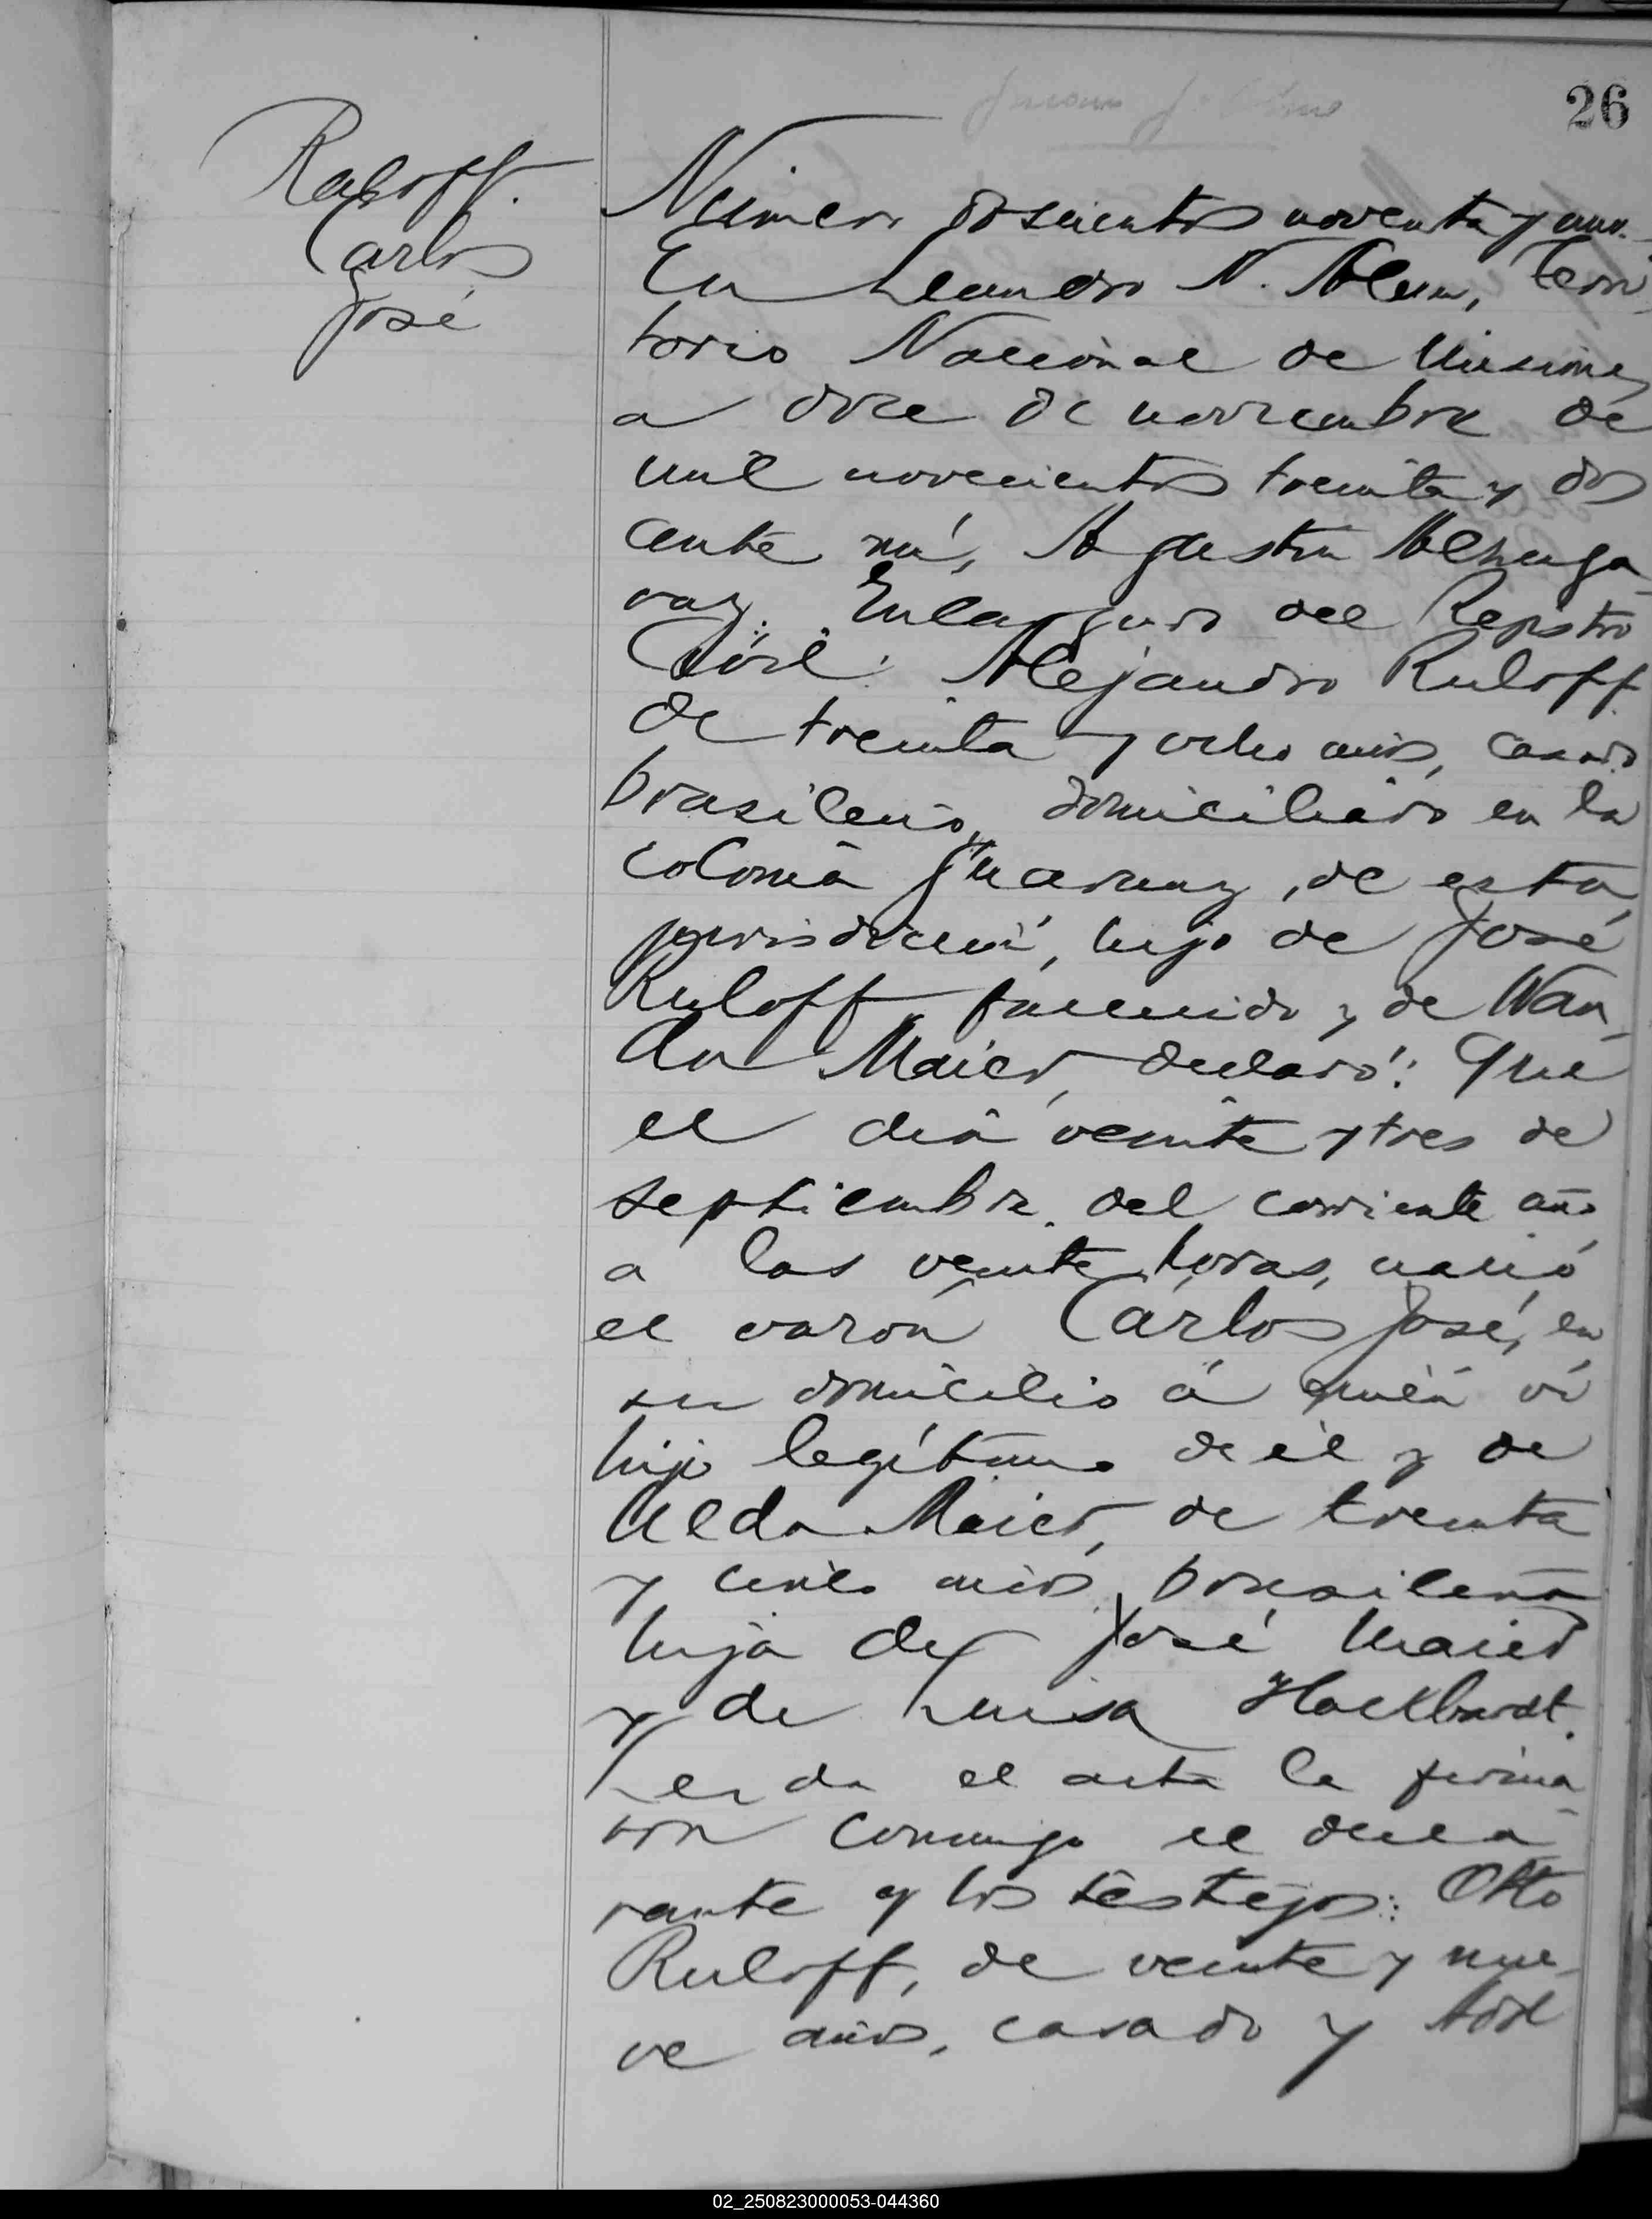 26
Ruloff.
Carlos
José
Número doscientos noventa y uno.
En Leandro N. Alem, Terri
torio Nacional de Misiones
a doce de noviembre de
mil novecientos treinta y dos
ante mí, Agustin
Encargado del Registro
Civil: Alejandro Ruloff
de treinta y ocho años, casado
brasileño, domiciliado en la
colonia Guarany, de esta
jurisdicción, hijo de José
Ruloff fallecido y de Wan
da Maier, declaró: Que
el día veinte y tres de
septiembre del corriente año
a las veinte horas, nació
el varón Carlos José, en
su domicilio á quién ví
hijo legítimo de él y de
Maier, de treinta
y cinco años, brasileña
hija de José Maier
y de Luisa Hackbardt.
Leida el acta la firma
ron conmigo el decla
rante y los testigos: Otto
Ruloff, de veinte y nue
ve años, casado y
02_250823000053-044360